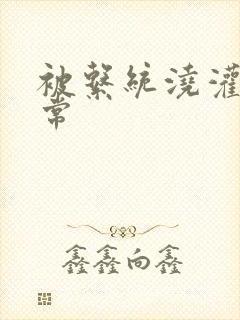 被系統澆灌
常
鑫鑫向鑫